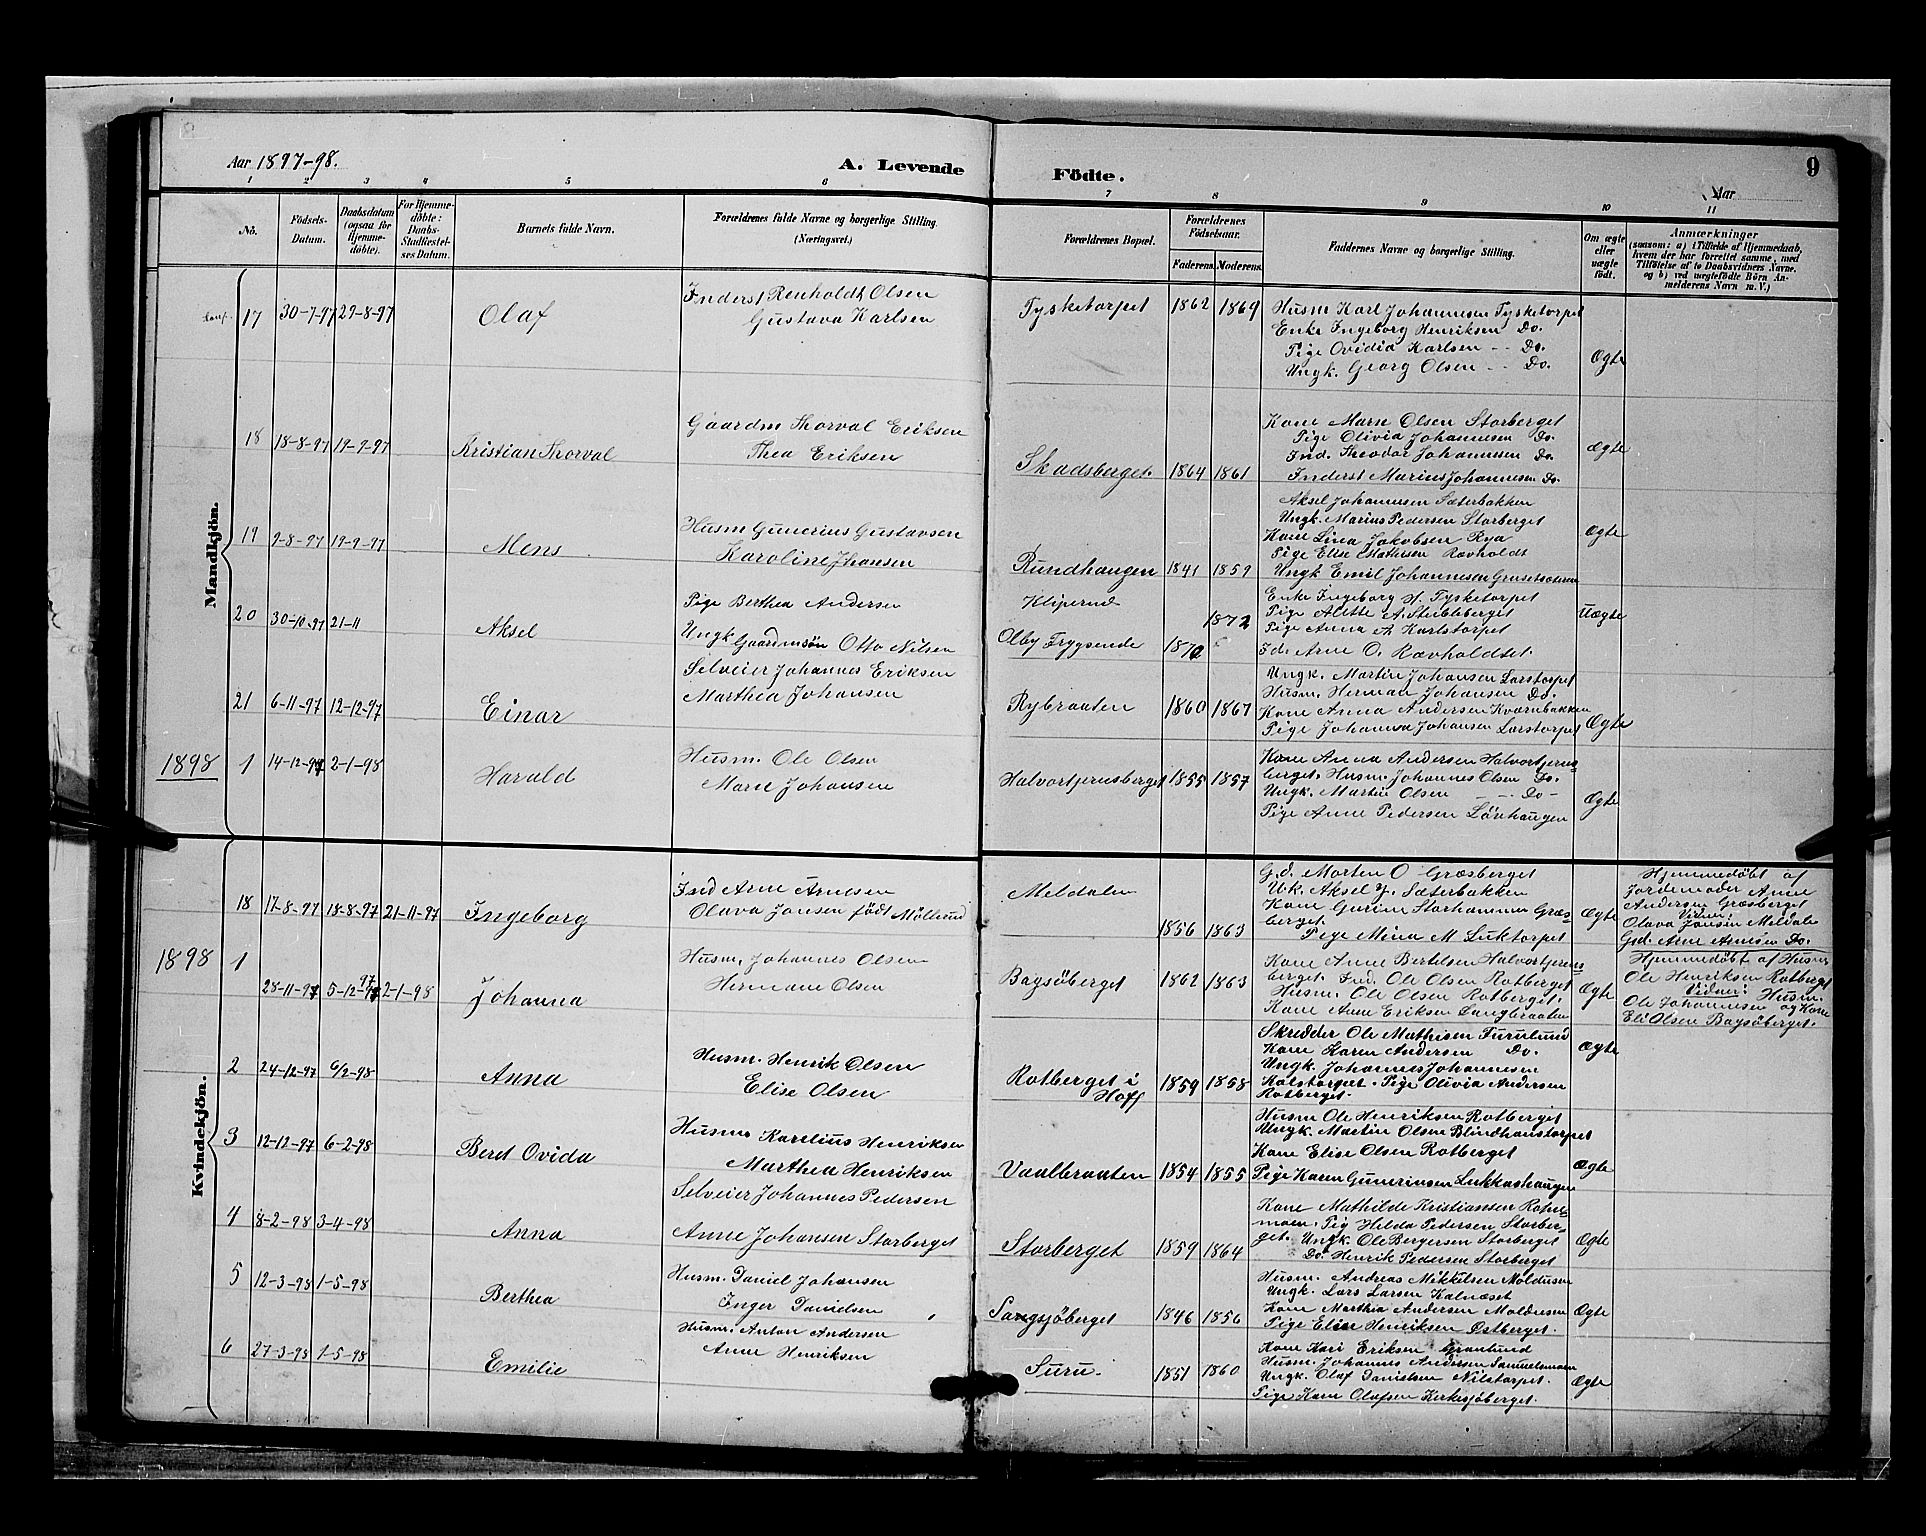 Aar 1897-98.
A. Levende
Födte.
9
Aar
1 2 3 4 5 6 7 8 9 10 11
No.
Födsels-Datum.
Daabsdatum (ogsaa for Hjemmedöbte).
For Hjemmedöbte: Daabs-Stadfæstelses Datum.
Barnets fulde Navn.
Forældrenes fulde Navne og borgerlige Stilling.
(Næringsvei.)
Forældrenes Bopæl.
Forældrenes Födselsaar.
Faderens. Moderens.
Faddernes Navne og borgerlige Stilling.
Om ægte eller uægte födt.
Anmærkninger
(saasom: a) i Tilfælde af Hjemmedaab,
hvem der har forrettet samme, med
Tilföielse af to Daabsvidners Navne.
og b) ved uægtefödte Börn Anmelderens Navn m. V.)
Mandkjön.
17 30-7-97 29-8-97 Olaf
Inderst Renholdt Olsen
Gustava Karlsen
Tysketorpet 1862 1869
Husm Karl Johannesen Tysketorpet
Enke Ingeborg Henriksen Do.
Pige Ovidia Karlsen -- Do.
Ungk. Georg Olsen -- Do.
Ægte
18 18-8-97 19-9-97 Kristian Thorval
Gaardm Thorval Eriksen
Thea Eriksen
Skadsberget. 1864 1861
Kone Marn Olsen Storberget
Pige Olivia Johannesen Do.
Ind. Theodor Johannesen Do.
Inderst Marius Johannesen Do.
Ægte
19 9-8-97 19-9-97 Mens
Husm Gunerius Gustavsen
Karoline Jhansen
Rundhaugen 1841 1859
Aksel Johannesen Sæterbakken
Ungk. Marius Pedersen Storberget
Kone Lina Jakobsen Rya
Pige Elise Mathesen Ravholdt
Ungk Emil Johannesen Grusetsæteren
Ægte
20 30-10-97 21-11 Aksel
Pige Berthea Andersen
Ungk Gaardmsön Otto Nilsen
Klipernd 1872
Olby Trygsende 1870
Enke Ingeborg H. Tysketorpet
Pige Alette A. Stibleberget
Pige Anna A. Karlstorpet
Id. Arne O. Rævholdset.
Uægte
21 6-11-97 12-12-97 Einar
Selveier Johannes Eriksen
Marthea Johansen
Rybraaten 1860 1867
Ungk. Martin Johansen Larstorpet
Husm. Herman Johansen Do.
Kone Anna Andersen Kværnbakken
Pige Johanna Johansen Larstorpet
Ægte
1898 1 14-12-97 2-1-98 Harald
Husm. Ole Olsen
Marie Johansen
Halvortjernsberget 1855 1857
Kone Anna Andersen Halvortjerns-
berget. Husm. Johannes Olsen Do.
Ungk. Martin Olsen -- Do-
Pige Anne Pedersen Lövhaugen
Ægte
Kvindekjön.
18 17-8-97 18-8-97 21-11-97 Ingeborg
Ind Arne Arnesen
Olava Jansen födt Möllerud
Meldalen 1856 1863
G.d. Morten O Græsberget
U.k. Aksel J. Sæterbakken
Kone Gurine Storhammer Græs-
berget.
Pige Mina M. Luktorpet
Ægte
Hjemmedöbt af
Jordemoder Anne
Andersen Græsberget
Vidner:
Olava Jansen Meldale
Grd. Arne Arnesen Do.
1898 1 28-11-97 5-12-97 2-1-98 Johanna
Husm. Johannes Olsen
Hermane Olsen
Bagsöberget 1862 1863
Kone Anne Bertelsen Halvortjerns-
berget. Ind. Ole Olsen Rotberget
Husm. Ole Olsen Rotberget.
Kone Anne Eriksen Langbraaten
Ægte
Hjemmedöbt af Husm
Ole Henriksen Rotberget
Vidner: Husm.
Ole Johannesen og Kone
Eli Olsen Bagsöberget.
2 24-12-97 6/2-98 Anna
Husm. Henrik Olsen
Elise Olsen
Rotberget i
Hoff
1859 1858
Skredder Ole Mathisen Furulund
Kone Karen Andersen Do.
Ungk. Johannes Johannesen
Kolstorpet. Pige Olivia Andersen
Rotberget.
Ægte
3 12-12-97 6-2-98 Beret Ovida
Husm Karelius Henriksen
Marthea Henriksen
Vaalbraaten 1854 1855
Husm Ole Henriksen Rotberget
Ungk. Martin Olsen Blindhanstorpet
Kone Elise Olsen Rotberget
Pige Karen Gunerinsen Lukkashaugen
Ægte
4 8-2-98 3-4-98 Anna
Selveier Johannes Pedersen
Anne Johansen Storberget
Storberget 1859 1864
Kone Mathilde Kristiansen
moen. Pig Hilda Pedersen Storber-
get. Ungk. Ole Bergersen Storberget
Do. Henrik Pedersen Storberget
Ægte
5 12-3-98 1-5-98 Berthea
Husm. Daniel Johansen
Inger Danielsen
Sangsjöberget 1846 1856
Husm. Andreas Mikkelsen Moldusen
Ungk. Lars Larsen Kalnæset
Kone Marthia Andersen Moldusen
Pige Elise Henriksen Östberget.
Ægte
6 27-3-98 1-5-98 Emilie
Husm. Anton Andersen
Anne Henriksen
Suru. 1851 1860
Kone Kari Eriksen Granlund
Husm. Johannes Andersen Samuelsmoen
Ungk. Olaf Danielsen Nilstorpet.
Pige Kare Olafsen Kirkesjöberget.
Ægte